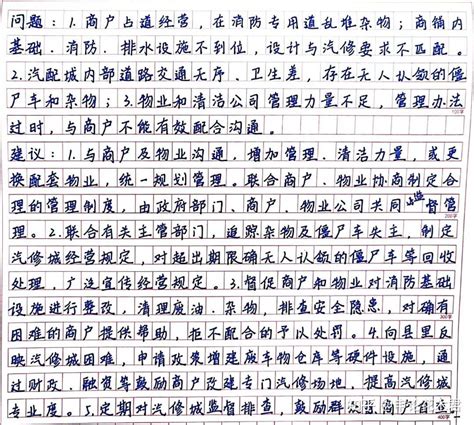 问题：1.商户占道经营，在消防专用道乱堆杂物；商铺内
基础、消防、排水设施不到位，设计与汽修要求不匹配。
2.汽配城内部道路交通无序、卫生差，存在无人认领的僵
尸车和杂物；3.物业和清洁公司管理力量不足，管理办法
100字
过时，与商户不能有效配合沟通。
建议：1.与商户及物业沟通，增加管理、清洁力量，或更
换配套物业，统一规划管理。联合商户、物业协商制定合
理的管理制度，由政府部门、商户、物业公司共同监督管
200字
理。2.联合有关主管部门，追踪杂物及僵尸车失主，制定
汽修城经营规定，对超出期限无人认领的僵尸车等回收
处理，广泛宣传经营规定。3.督促商户和物业对消防基础
设施进行整改，清理废油、杂物，排查安全隐患，对确有
300字
困难的商户提供帮助，拒不配合的予以处罚。4.向县里反
映汽修城困难，申请改装增建废车物仓库等硬件设施，通
过财政、融资等鼓励商户改建专门汽修场地，提高汽修城
专业度。5.定期对汽修城监督排查，鼓励群众商户自查
400字